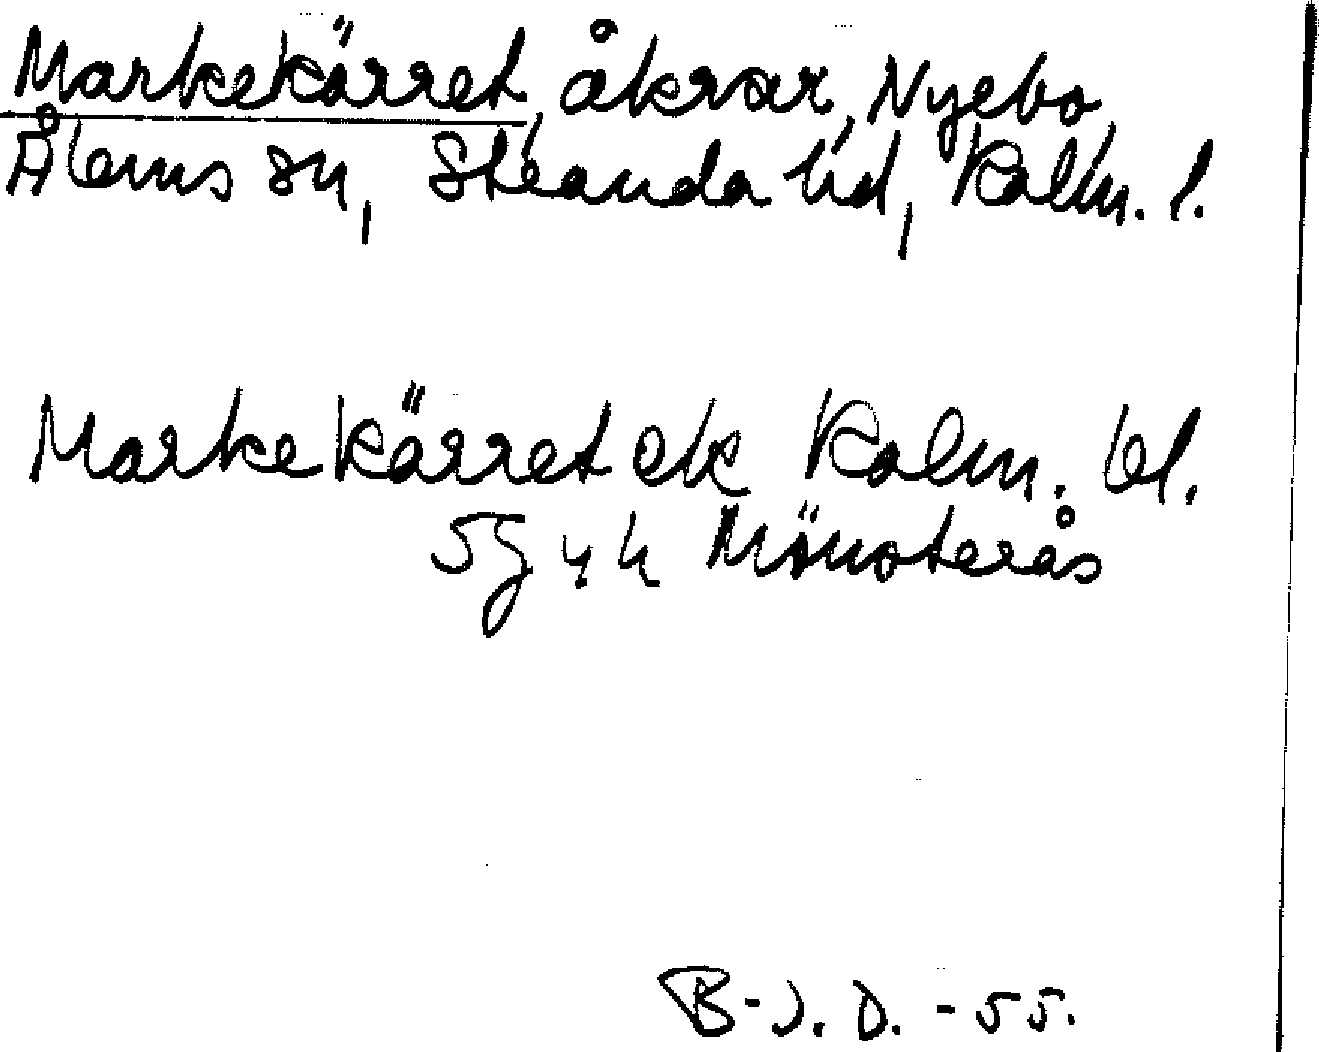 Markekärret, åkrar, Nyebo,
Ålems sn, Stranda hd, Kalm. l.
Markekärret ek Kalm. bl.
5g 4h Mönsterås
B-J. D. -55.